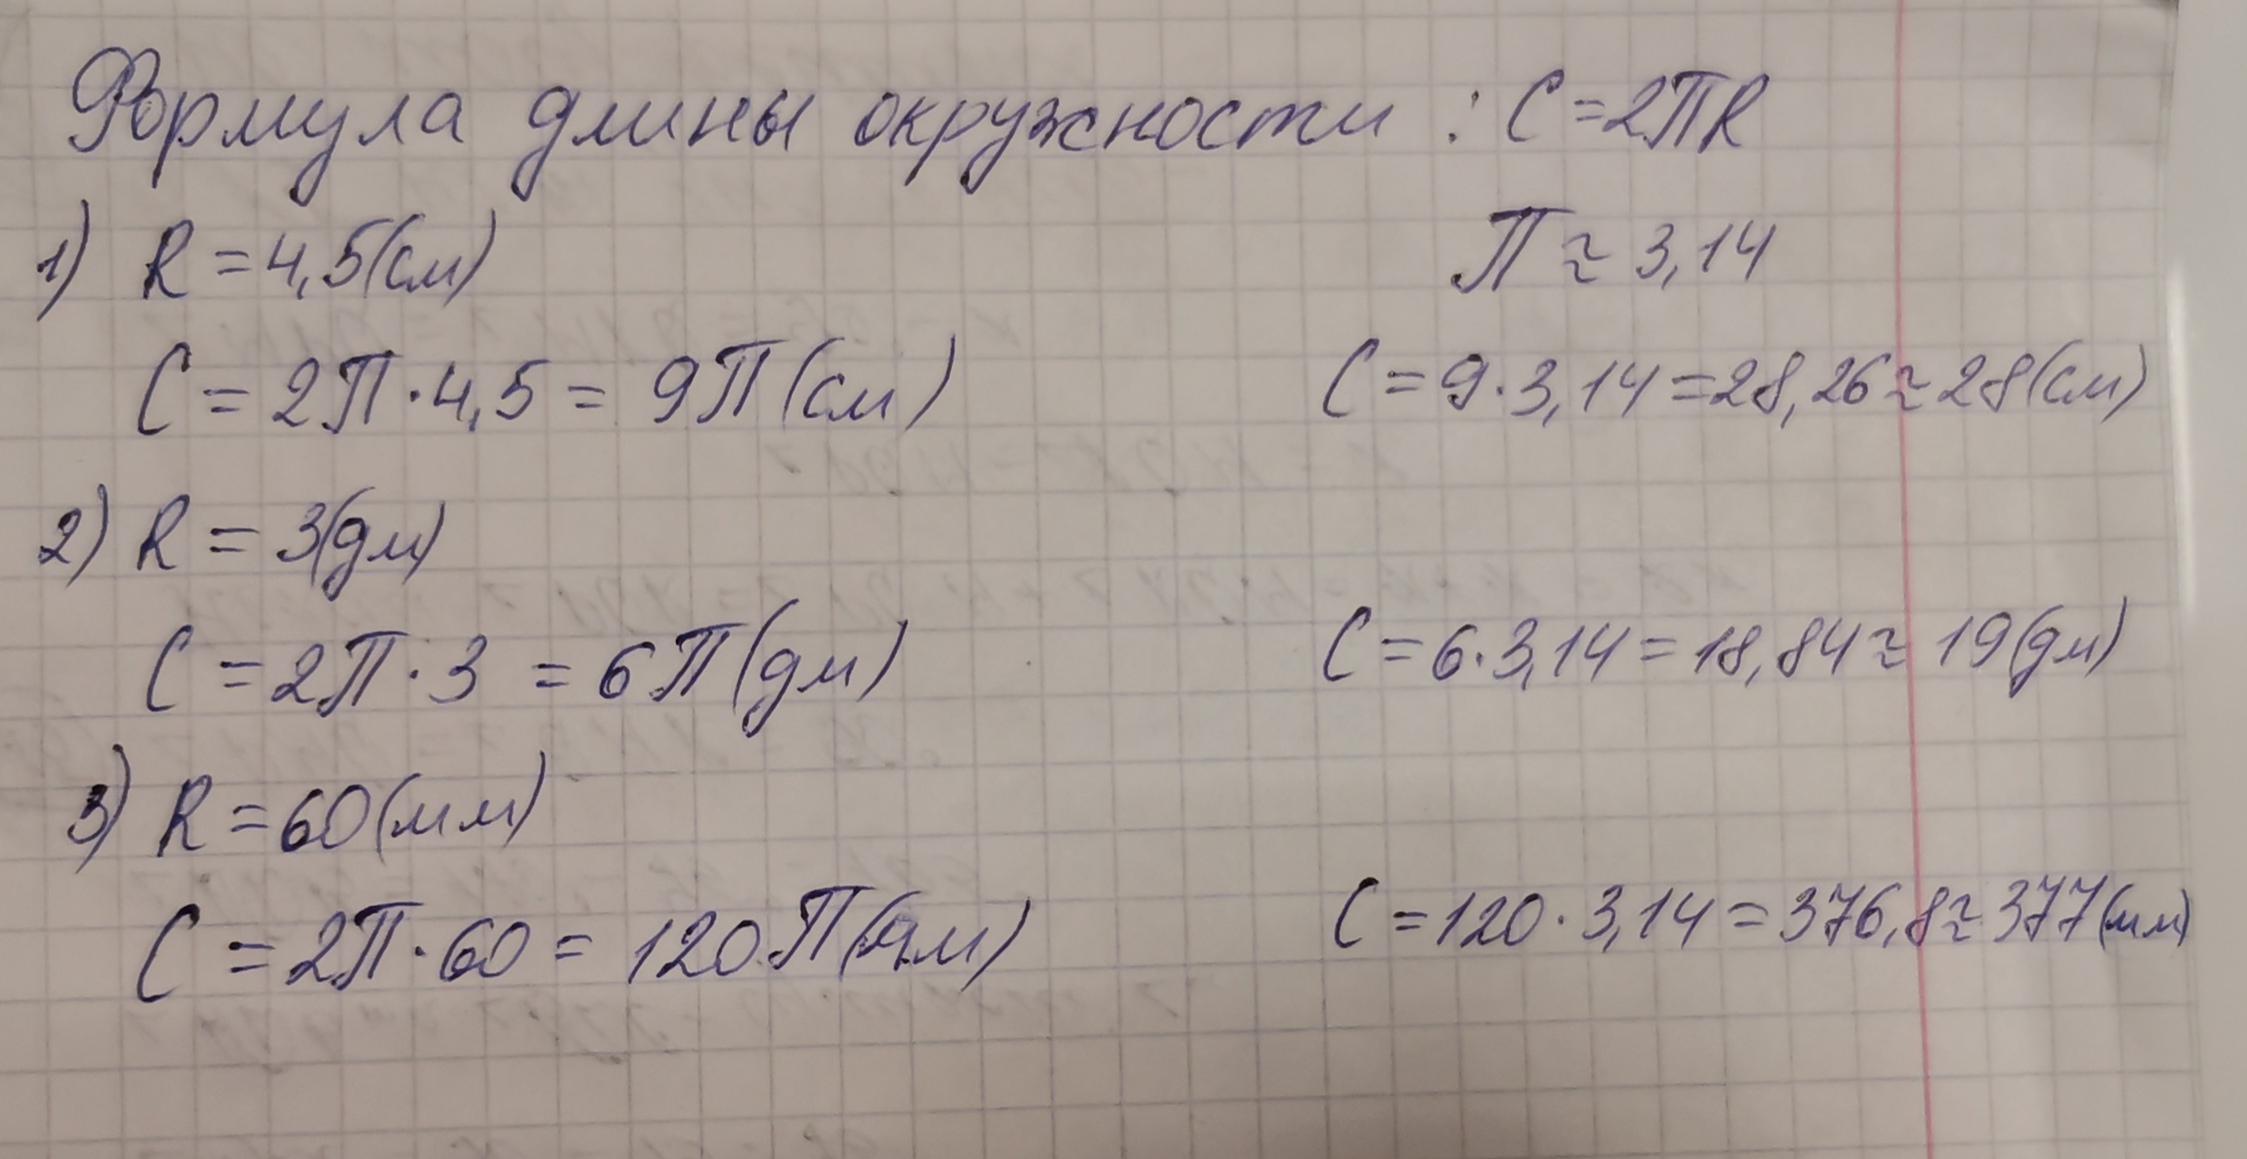 Формула длины окружности : C=2ПR
1) R = 4,5(см)
П ≈ 3,14
C = 2П · 4,5 = 9П(см)
C = 9 · 3,14 = 28,26 ≈ 28(см)
2) R = 3(дм)
C = 2П · 3 = 6П(дм)
C = 6 · 3,14 = 18,84 ≈ 19(дм)
3) R = 60(мм)
C = 2П · 60 = 120П(мм)
C = 120 · 3,14 = 376,8 ≈ 377(мм)